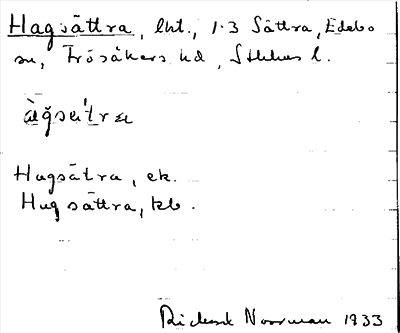 Hagsättra, lht., 1:3 Sättra, Edebo
sn, Frösåkers hd, Sthlms l.
Hagsätra, ek.
Hagsättra, kb.
Rickard Norrman 1933